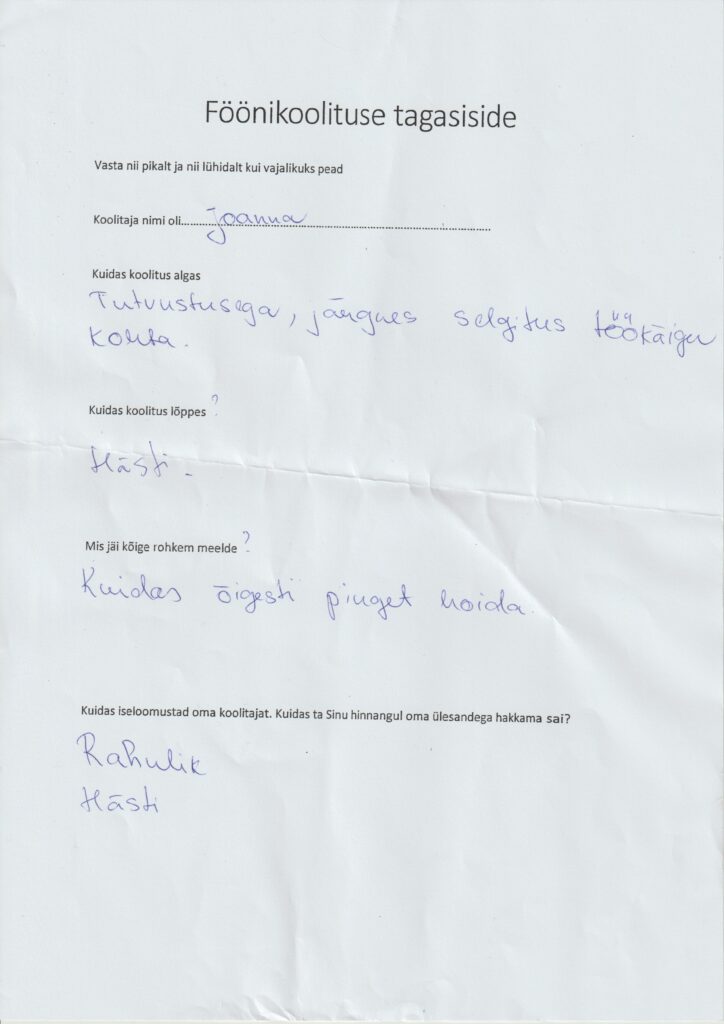 Föönikoolituse tagasiside
Vasta nii pikalt ja nii lühidalt kui vajalikuks pead
Koolitaja nimi oli.....Joanna.....
Kuidas koolitus algas
Tutvustusega, järgnes selgitus töökäigu
kohta.
Kuidas koolitus lõppes ?
Hästi.
Mis jäi kõige rohkem meelde ?
Kuidas õigesti pinget hoida.
Kuidas iseloomustad oma koolitajat. Kuidas ta Sinu hinnangul oma ülesandega hakkama sai?
Rahulik
Hästi